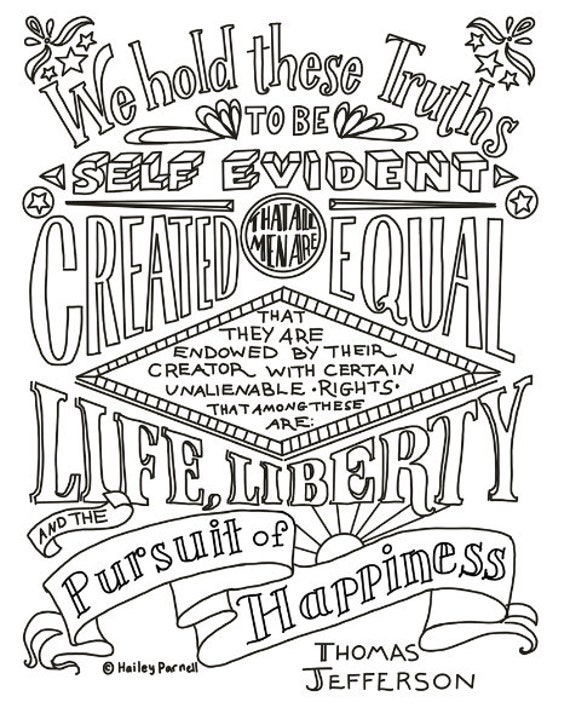 We hold these Truths
TO BE
SELF EVIDENT
THAT ALL
MEN ARE
CREATED EQUAL
THAT
THEY ARE
ENDOWED BY THEIR
CREATOR WITH CERTAIN
UNALIENABLE • RIGHTS •
THAT AMONG THESE
ARE:
LIFE, LIBERTY
AND THE
Pursuit of
Happiness
THOMAS
JEFFERSON
© Hailey Parnell